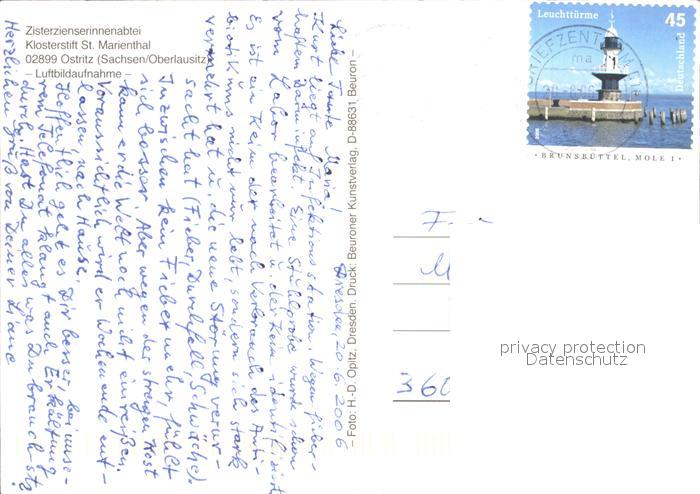 Zisterzienserinnenabtei
Klosterstift St. Marienthal
02899 Ostritz (Sachsen/Oberlausitz)
– Luftbildaufnahme –
– Foto: H.-D. Opitz, Dresden. Druck: Beuroner Kunstverlag, D-88631 Beuron –
Leuchttürme
45
Deutschland
BRIEFZENTRUM
· BRUNSBÜTTEL, MOLE 1 ·
Dresden, 20.6.2006
Liebe Tante Maria!
Kurt liegt auf Infektionsstation. Wegen fieber-
haftem Darminfekt. Eine Stuhlprobe wurde schon
vom Labor bearbeitet u. der Keim identifiziert
Es ist ein Keim der nach Verbrauch des Anti-
biotikums nicht nur lebt, sondern sich stark
vermehrt hat u. die neue Störung verur-
sacht hat (Fieber, Durchfall, Schwäche).
Inzwischen kein Fieber mehr, fühlt
sich besser. Aber wegen der strengen Kost
kann er die Welt noch nicht einreißen.
Voraussichtlich wird er Wochenende ent-
lassen, nach Hause.
Hoffentlich geht es Dir besser, bei unse-
rem Telefonat klangt auch Erkältung
durch. Hast Du alles was Du brauchst?
Herzlichen Gruß von Deiner Liane
F
M
360
privacy protection
Datenschutz